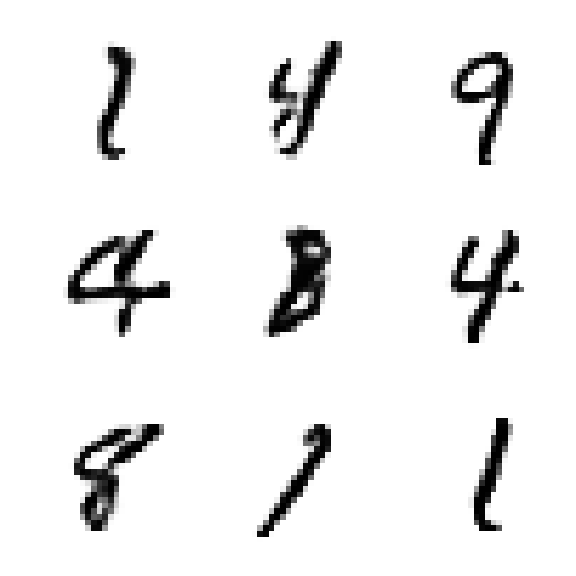 1 8 9
4 8 4
8 1 1